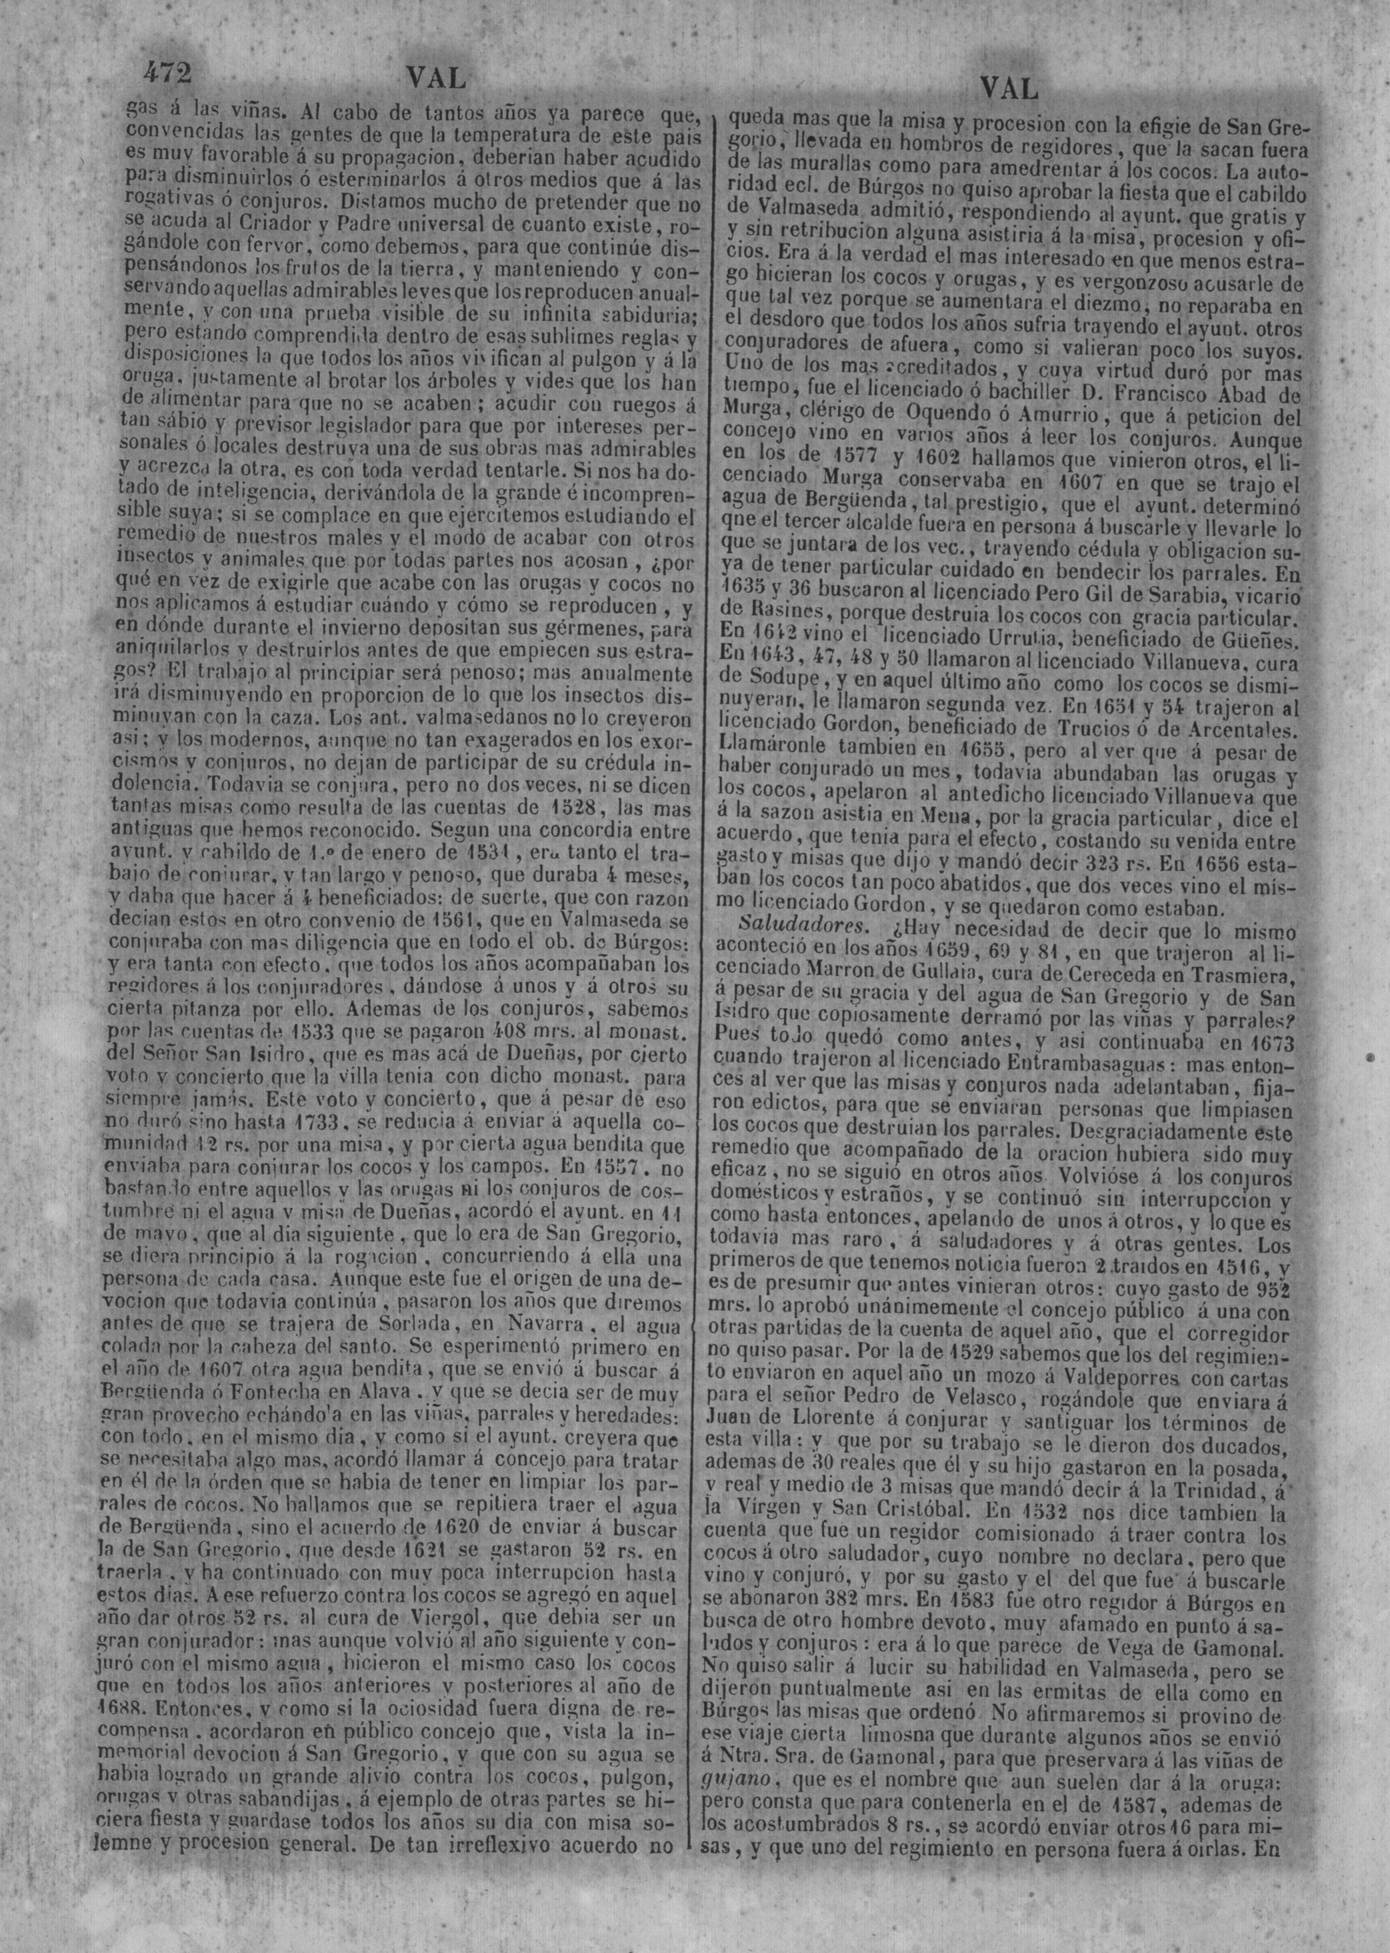 472
VAL
VAL
gas á las viñas. Al cabo de tantos años ya parece que,
convencidas las gentes de que la temperatura de este pais
es muy favorable á su propagacion, deberian haber acudido
para disminuirlos ó esterminarlos á otros medios que á las
rogativas ó conjuros. Distamos mucho de pretender que no
se acuda al Criador y Padre universal de cuanto existe, ro-
gándole con fervor, como debemos, para que continúe dis-
pensándonos los frutos de la tierra, y manteniendo y con-
servando aquellas admirables leyes que los reproducen anual-
mente, y con una prueba visible de su infinita sabiduria;
pero estando comprendida dentro de esas sublimes reglas y
disposiciones la que todos los años vivifican al pulgon y á la
oruga, justamente al brotar los árboles y vides que los han
de alimentar para que no se acaben; acudir con ruegos á
tan sábio y previsor legislador para que por intereses per-
sonales ó locales destruya una de sus obras mas admirables
y acrezca la otra, es con toda verdad tentarle. Si nos ha do-
tado de inteligencia, derivándola de la grande é incompren-
sible suya; si se complace en que ejercitemos estudiando el
remedio de nuestros males y el modo de acabar con otros
insectos y animales que por todas partes nos acosan, ¿por
qué en vez de exigirle que acabe con las orugas y cocos no
nos aplicamos á estudiar cuándo y cómo se reproducen, y
en dónde durante el invierno depositan sus gérmenes, para
aniquilarlos y destruirlos antes de que empiecen sus estra-
gos? El trabajo al principiar será penoso; mas anualmente
irá disminuyendo en proporcion de lo que los insectos dis-
minuyan con la caza. Los ant. valmasedanos no lo creyeron
asi; y los modernos, aunque no tan exagerados en los exor-
cismos y conjuros, no dejan de participar de su crédula in-
dolencia. Todavia se conjura, pero no dos veces, ni se dicen
tantas misas como resulta de las cuentas de 1528, las mas
antiguas que hemos reconocido. Segun una concordia entre
ayunt. y cabildo de 1.º de enero de 1531, era tanto el tra-
bajo de conjurar, y tan largo y penoso, que duraba 4 meses,
y daba que hacer á 4 beneficiados: de suerte, que con razon
decian estos en otro convenio de 1561, que en Valmaseda se
conjuraba con mas diligencia que en todo el ob. de Búrgos:
y era tanta con efecto, que todos los años acompañaban los
regidores á los conjuradores, dándose á unos y á otros su
cierta pitanza por ello. Ademas de los conjuros, sabemos
por las cuentas de 1533 que se pagaron 408 mrs. al monast.
del Señor San Isidro, que es mas acá de Dueñas, por cierto
voto y concierto que la villa tenia con dicho monast. para
siempre jamás. Este voto y concierto, que á pesar de eso
no duró sino hasta 1733, se reducia á enviar á aquella co-
munidad 12 rs. por una misa, y por cierta agua bendita que
enviaba para conjurar los cocos y los campos. En 1557, no
bastando entre aquellos y las orugas ni los conjuros de cos-
tumbre ni el agua y misa de Dueñas, acordó el ayunt. en 11
de mayo, que al dia siguiente, que lo era de San Gregorio,
se diera principio á la rogacion, concurriendo á ella una
persona de cada casa. Aunque este fue el origen de una de-
vocion que todavia continúa, pasaron los años que diremos
antes de que se trajera de Sorlada, en Navarra, el agua
colada por la cabeza del santo. Se esperimentó primero en
el año de 1607 otra agua bendita, que se envió á buscar á
Bergüenda ó Fontecha en Alava, y que se decia ser de muy
gran provecho echándola en las viñas, parrales y heredades:
con todo, en el mismo dia, y como si el ayunt. creyera que
se necesitaba algo mas, acordó llamar á concejo para tratar
en él de la órden que se habia de tener en limpiar los par-
rales de cocos. No hallamos que se repitiera traer el agua
de Bergüenda, sino el acuerdo de 1620 de enviar á buscar
la de San Gregorio, que desde 1621 se gastaron 52 rs. en
traerla, y ha continuado con muy poca interrupcion hasta
estos dias. A ese refuerzo contra los cocos se agregó en aquel
año dar otros 52 rs. al cura de Viergol, que debia ser un
gran conjurador: mas aunque volvió al año siguiente y con-
juró con el mismo agua, hicieron el mismo caso los cocos
que en todos los años anteriores y posteriores al año de
1688. Entonces, y como si la ociosidad fuera digna de re-
compensa, acordaron en público concejo que, vista la in-
memorial devocion á San Gregorio, y que con su agua se
habia logrado un grande alivio contra los cocos, pulgon,
orugas y otras sabandijas, á ejemplo de otras partes se hi-
ciera fiesta y guardase todos los años su dia con misa so-
lemne y procesion general. De tan irreflexivo acuerdo no
queda mas que la misa y procesion con la efigie de San Gre-
gorio, llevada en hombros de regidores, que la sacan fuera
de las murallas como para amedrentar á los cocos. La auto-
ridad ecl. de Búrgos no quiso aprobar la fiesta que el cabildo
de Valmaseda admitió, respondiendo al ayunt. que gratis y
y sin retribucion alguna asistiria á la misa, procesion y ofi-
cios. Era á la verdad el mas interesado en que menos estra-
go hicieran los cocos y orugas, y es vergonzoso acusarle de
que tal vez porque se aumentara el diezmo, no reparaba en
el desdoro que todos los años sufria trayendo el ayunt. otros
conjuradores de afuera, como si valieran poco los suyos.
Uno de los mas acreditados, y cuya virtud duró por mas
tiempo, fue el licenciado ó bachiller D. Francisco Abad de
Murga, clérigo de Oquendo ó Amurrio, que á peticion del
concejo vino en varios años á leer los conjuros. Aunque
en los de 1577 y 1602 hallamos que vinieron otros, el li-
cenciado Murga conservaba en 1607 en que se trajo el
agua de Bergüenda, tal prestigio, que el ayunt. determinó
qne el tercer alcalde fuera en persona á buscarle y llevarle lo
que se juntara de los vec., trayendo cédula y obligacion su-
ya de tener particular cuidado en bendecir los parrales. En
1635 y 36 buscaron al licenciado Pero Gil de Sarabia, vicario
de Rasines, porque destruia los cocos con gracia particular.
En 1642 vino el licenciado Urrutia, beneficiado de Güeñes.
En 1643, 47, 48 y 50 llamaron al licenciado Villanueva, cura
de Sodupe, y en aquel último año como los cocos se dismi-
nuyeran, le llamaron segunda vez. En 1651 y 54 trajeron al
licenciado Gordon, beneficiado de Trucios ó de Arcentales.
Llamáronle tambien en 1655, pero al ver que á pesar de
haber conjurado un mes, todavia abundaban las orugas y
los cocos, apelaron al antedicho licenciado Villanueva que
á la sazon asistia en Mena, por la gracia particular, dice el
acuerdo, que tenia para el efecto, costando su venida entre
gasto y misas que dijo y mandó decir 323 rs. En 1656 esta-
ban los cocos tan poco abatidos, que dos veces vino el mis-
mo licenciado Gordon, y se quedaron como estaban.
Saludadores. ¿Hay necesidad de decir que lo mismo
aconteció en los años 1659, 69 y 81, en que trajeron al li-
cenciado Marron de Gullaia, cura de Cereceda en Trasmiera,
á pesar de su gracia y del agua de San Gregorio y de San
Isidro que copiosamente derramó por las viñas y parrales?
Pues todo quedó como antes, y asi continuaba en 1673
cuando trajeron al licenciado Entrambasaguas: mas enton-
ces al ver que las misas y conjuros nada adelantaban, fija-
ron edictos, para que se enviaran personas que limpiasen
los cocos que destruian los parrales. Desgraciadamente este
remedio que acompañado de la oracion hubiera sido muy
eficaz, no se siguió en otros años. Volvióse á los conjuros
domésticos y estraños, y se continuó sin interrupccion y
como hasta entonces, apelando de unos á otros, y lo que es
todavia mas raro, á saludadores y á otras gentes. Los
primeros de que tenemos noticia fueron 2 traidos en 1516, y
es de presumir que antes vinieran otros: cuyo gasto de 952
mrs. lo aprobó unánimemente el concejo público á una con
otras partidas de la cuenta de aquel año, que el corregidor
no quiso pasar. Por la de 1529 sabemos que los del regimien-
to enviaron en aquel año un mozo á Valdeporres con cartas
para el señor Pedro de Velasco, rogándole que enviara á
Juan de Llorente á conjurar y santiguar los términos de
esta villa: y que por su trabajo se le dieron dos ducados,
ademas de 30 reales que él y su hijo gastaron en la posada,
y real y medio de 3 misas que mandó decir á la Trinidad, á
la Vírgen y San Cristóbal. En 1532 nos dice tambien la
cuenta que fue un regidor comisionado á traer contra los
cocos á otro saludador, cuyo nombre no declara, pero que
vino y conjuró, y por su gasto y el del que fue á buscarle
se abonaron 382 mrs. En 1583 fue otro regidor á Búrgos en
busca de otro hombre devoto, muy afamado en punto á sa-
ludos y conjuros: era á lo que parece de Vega de Gamonal.
No quiso salir á lucir su habilidad en Valmaseda, pero se
dijeron puntualmente asi en las ermitas de ella como en
Búrgos las misas que ordenó. No afirmaremos si provino de
ese viaje cierta limosna que durante algunos años se envió
á Ntra. Sra. de Gamonal, para que preservara á las viñas de
gujano, que es el nombre que aun suelen dar á la oruga:
pero consta que para contenerla en el de 1587, ademas de
los acostumbrados 8 rs., se acordó enviar otros 16 para mi-
sas, y que uno del regimiento en persona fuera á oirlas. En